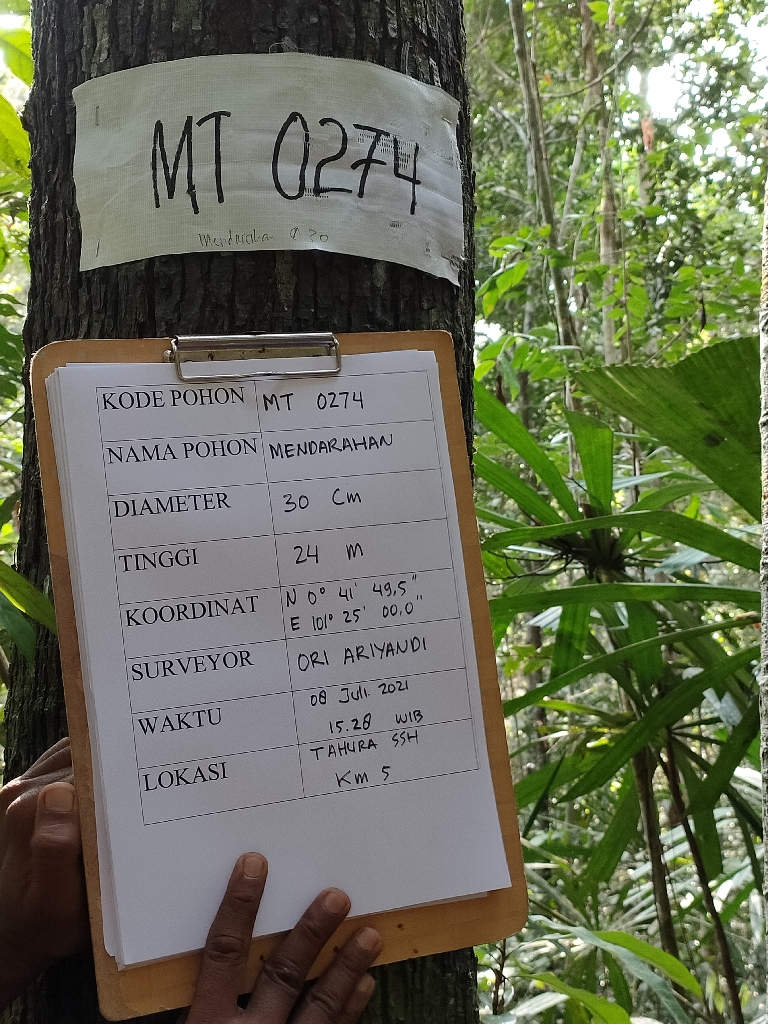 MT 0274
Mendarahan Ø 30
KODE POHON MT 0274
NAMA POHON MENDARAHAN
DIAMETER 30 Cm
TINGGI 24 m
KOORDINAT N 0° 41' 49,5"
E 101° 25' 00,0"
SURVEYOR ORI ARIYANDI
WAKTU 08 Juli 2021
15.28 WIB
LOKASI TAHURA SSH
Km 5